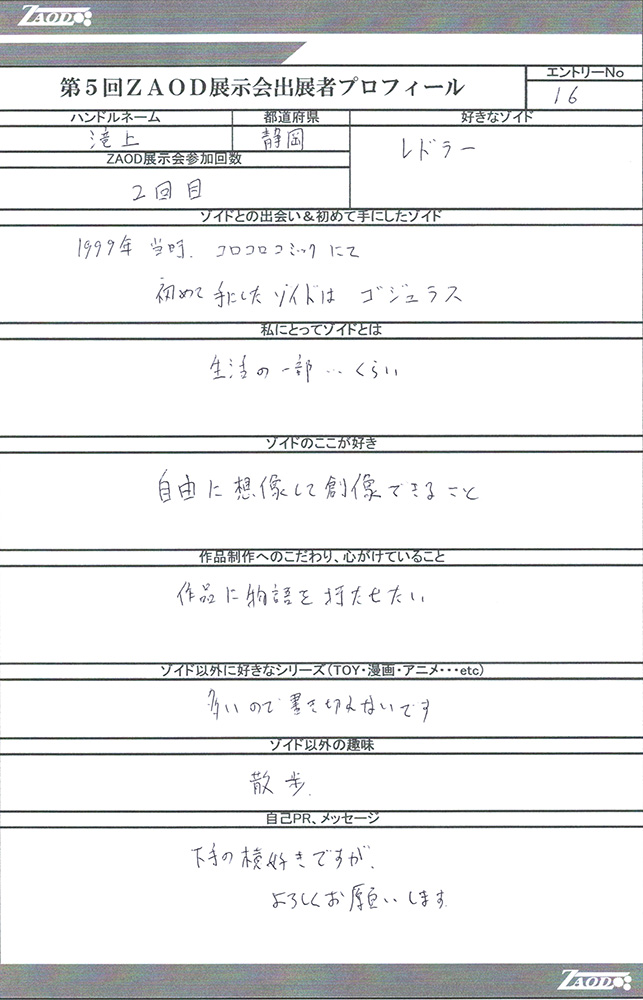 ZAOD
第5回ZAOD展示会出展者プロフィール
エントリーNo
16
ハンドルネーム
滝上
都道府県
静岡
好きなゾイド
レドラー
ZAOD展示会参加回数
2回目
ゾイドとの出会い&初めて手にしたゾイド
1999年 当時、コロコロコミックにて
初めて手にしたゾイドは ゴジュラス
私にとってゾイドとは
生活の一部…くらい
ゾイドのここが好き
自由に想像して創像できること
作品制作へのこだわり、心がけていること
作品に物語を持たせたい
ゾイド以外に好きなシリーズ(TOY・漫画・アニメ・・・etc)
多いので書き切れないです
ゾイド以外の趣味
散歩.
自己PR、メッセージ
下手の横好きですが、
よろしくお願いします.
ZAOD